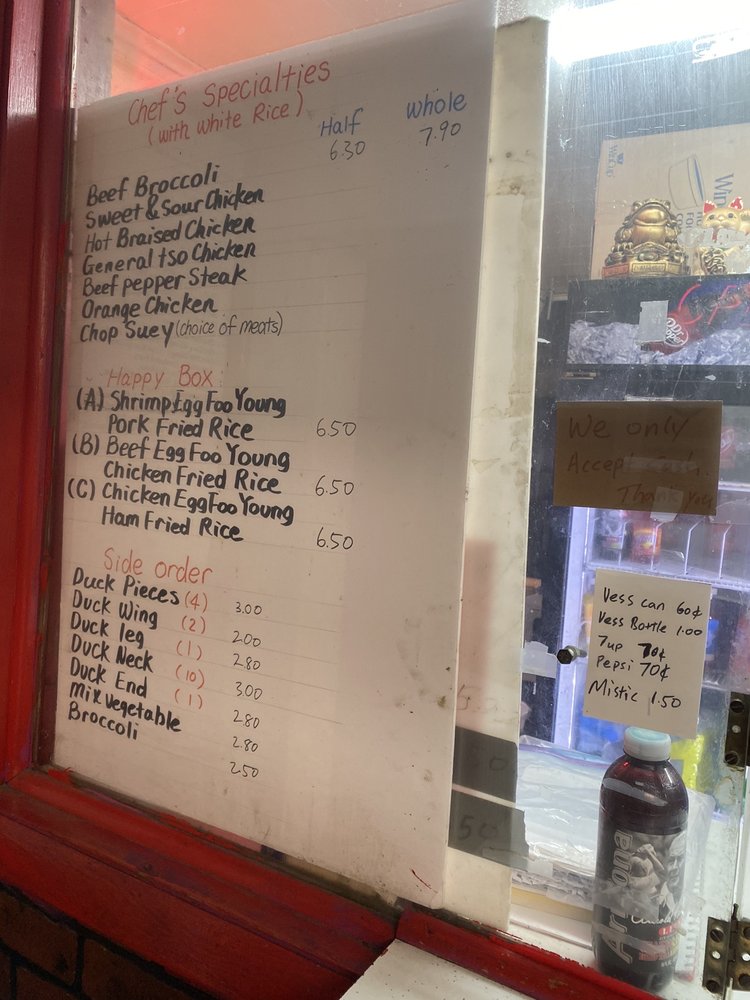 Chef's Specialties
(with White Rice)
Half Whole
6.30 7.90
Beef Broccoli
Sweet & Sour Chicken
Hot Braised Chicken
General tso Chicken
Beef pepper Steak
Orange Chicken
Chop Suey (choice of meats)
Happy Box
(A) Shrimp Egg Foo Young
Pork Fried Rice 6.50
(B) Beef Egg Foo Young
Chicken Fried Rice 6.50
(C) Chicken Egg Foo Young
Ham Fried Rice 6.50
Side order
Duck Pieces (4) 3.00
Duck Wing (2) 2.00
Duck leg (1) 2.80
Duck Neck (10) 3.00
Duck End (1) 2.80
Mix vegetable 2.80
Broccoli 2.50
We only
Accept Cash.
Thank you
Vess can 60¢
Vess Bottle 1.00
7up 70¢
Pepsi 70¢
Mistic 1.50
Arizona